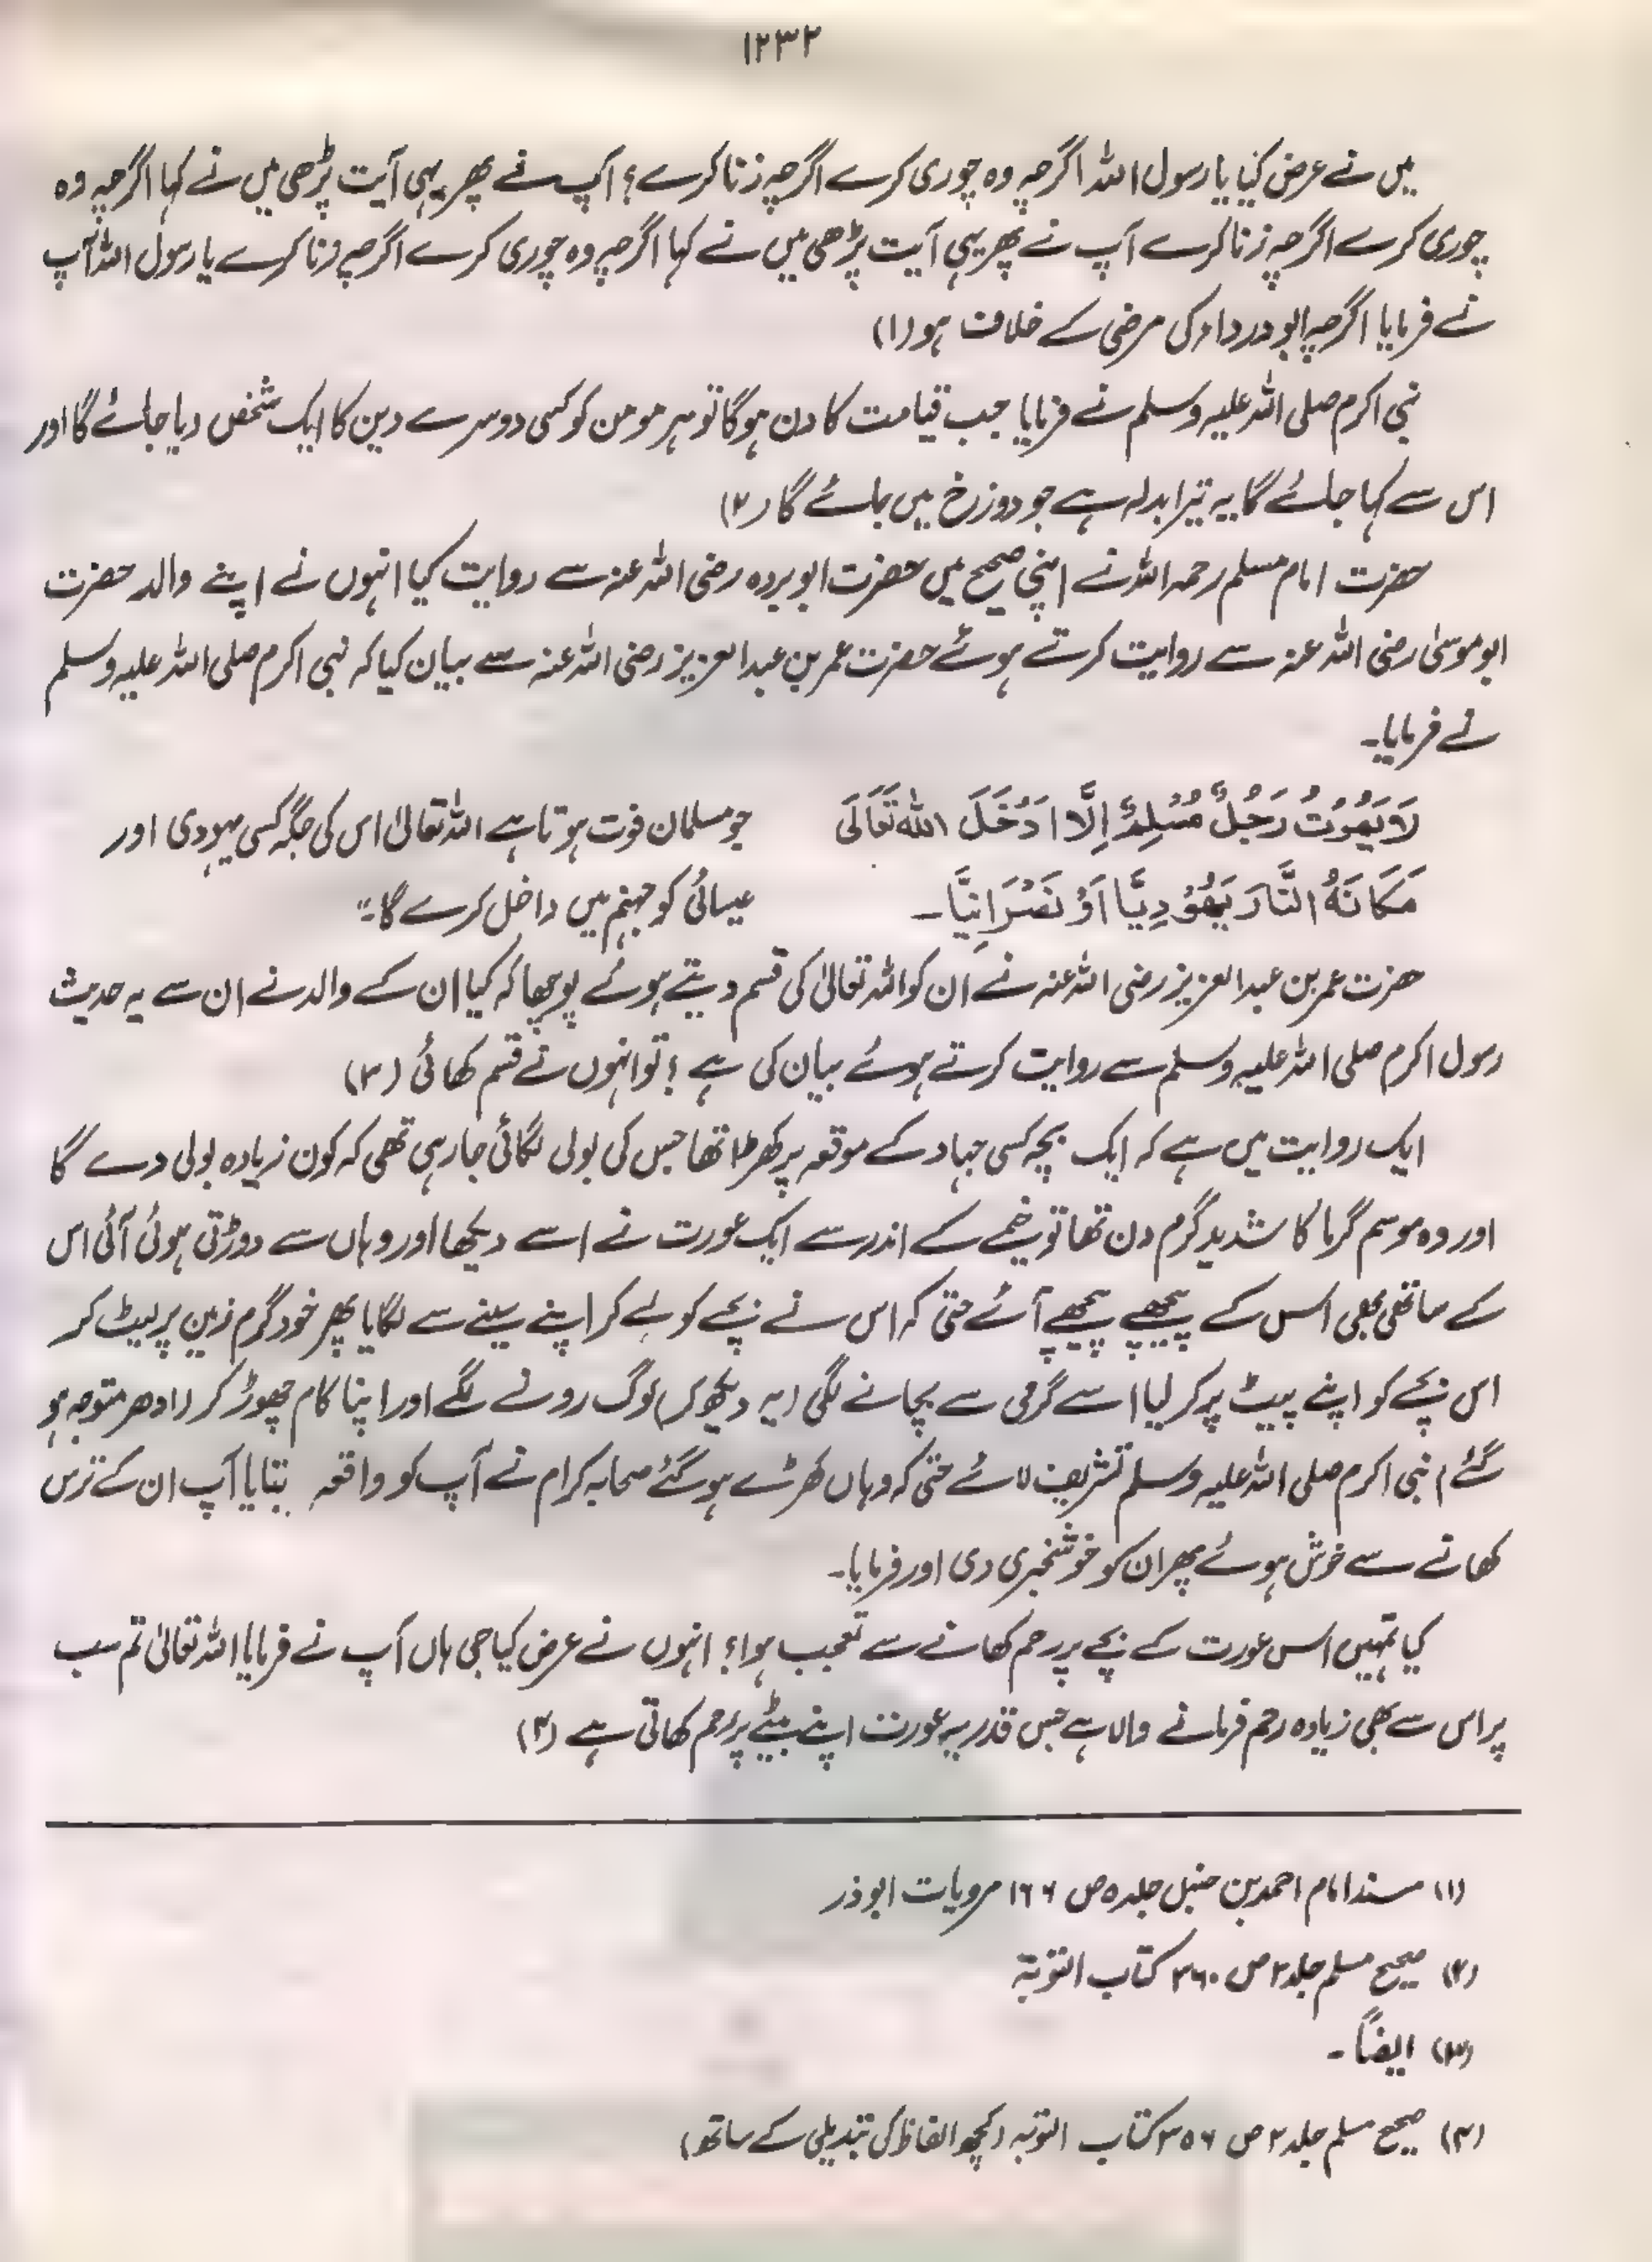 ۱۲۳۲
میں نے عرض کیا یا رسول اللہ اگرچہ وہ چوری کرے اگرچہ زنا کرے؟ آپ نے پھر یہی آیت پڑھی میں نے کہا اگرچہ وہ
چوری کرے اگرچہ زنا کرے آپ نے پھر یہی آیت پڑھی میں نے کہا اگرچہ وہ چوری کرے اگرچہ زنا کرے یا رسول اللہ آپ
نے فرمایا اگرچہ ابو درداء کی مرضی کے خلاف ہو (۱)
نبی اکرم صلی اللہ علیہ وسلم نے فرمایا جب قیامت کا دن ہوگا تو ہر مومن کو کسی دوسرے دین کا ایک شخص دیا جائے گا اور
اس سے کہا جائے گا یہ تیرا بدلہ ہے جو دوزخ میں جائے گا (۲)
حضرت امام مسلم رحمہ اللہ نے اپنی صحیح میں حضرت ابو بردہ رضی اللہ عنہ سے روایت کیا انہوں نے اپنے والد حضرت
ابو موسیٰ رضی اللہ عنہ سے روایت کرتے ہوئے حضرت عمر بن عبدالعزیز رضی اللہ عنہ سے بیان کیا کہ نبی اکرم صلی اللہ علیہ وسلم
نے فرمایا۔
لَا یَمُوْتُ رَجُلٌ مُسْلِمٌ اِلَّا اَدْخَلَ اللّٰہُ تَعَالَی
مَکَانَہُ النَّارَ یَھُوْدِیًّا اَوْ نَصْرَانِیًّا۔
جو مسلمان فوت ہوتا ہے اللہ تعالیٰ اس کی جگہ کسی یہودی اور
عیسائی کو جہنم میں داخل کرے گا۔"
حضرت عمر بن عبدالعزیز رضی اللہ عنہ نے ان کو اللہ تعالیٰ کی قسم دیتے ہوئے پوچھا کہ کیا ان کے والد نے ان سے یہ حدیث
رسول اکرم صلی اللہ علیہ وسلم سے روایت کرتے ہوئے بیان کی ہے؟ تو انہوں نے قسم کھائی (۳)
ایک روایت میں ہے کہ ایک بچہ کسی جہاد کے موقعہ پر کھڑا تھا جس کی بولی لگائی جا رہی تھی کہ کون زیادہ بولی دے گا
اور وہ موسم گرما کا شدید گرم دن تھا تو خیمے کے اندر سے ایک عورت نے اسے دیکھا اور وہاں سے دوڑتی ہوئی آئی اس
کے ساتھی بھی اس کے پیچھے پیچھے آئے حتی کہ اس نے بچے کو لے کر اپنے سینے سے لگایا پھر خود گرم زمین پر لیٹ کر
اس بچے کو اپنے پیٹ پر کر لیا اسے گرمی سے بچانے لگی (یہ دیکھ کر) لوگ رونے لگے اور اپنا کام چھوڑ کر (ادھر متوجہ ہو
گئے) نبی اکرم صلی اللہ علیہ وسلم تشریف لائے حتی کہ وہاں کھڑے ہو گئے صحابہ کرام نے آپ کو واقعہ بتایا آپ ان کے ترس
کھانے سے خوش ہوئے پھر ان کو خوشخبری دی اور فرمایا۔
کیا تمہیں اس عورت کے بچے پر رحم کھانے سے تعجب ہوا؟ انہوں نے عرض کیا جی ہاں آپ نے فرمایا اللہ تعالیٰ تم سب
پر اس سے بھی زیادہ رحم فرمانے والا ہے جس قدر یہ عورت اپنے بیٹے پر رحم کھاتی ہے (۴)
(۱) مسند امام احمد بن حنبل جلد ۵ ص ۱۶۶ مرویات ابوذر
(۲) صحیح مسلم جلد ۲ ص ۳۶۰ کتاب التوبۃ
(۳) ایضاً۔
(۴) صحیح مسلم جلد ۲ ص ۳۵۶ کتاب التوبہ (کچھ الفاظ کی تبدیلی کے ساتھ)